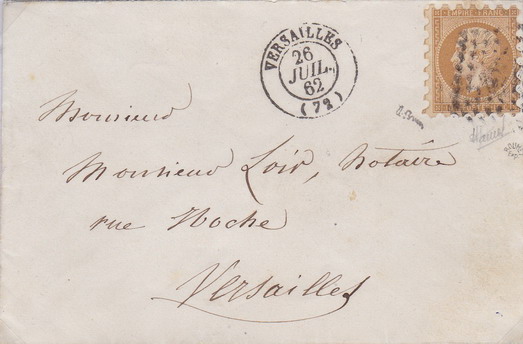 VERSAILLES
26
JUIL.
62
(72)
EMPIRE FRANC
Monsieur
Monsieur Loir, Notaire
rue Hoche
Versailles